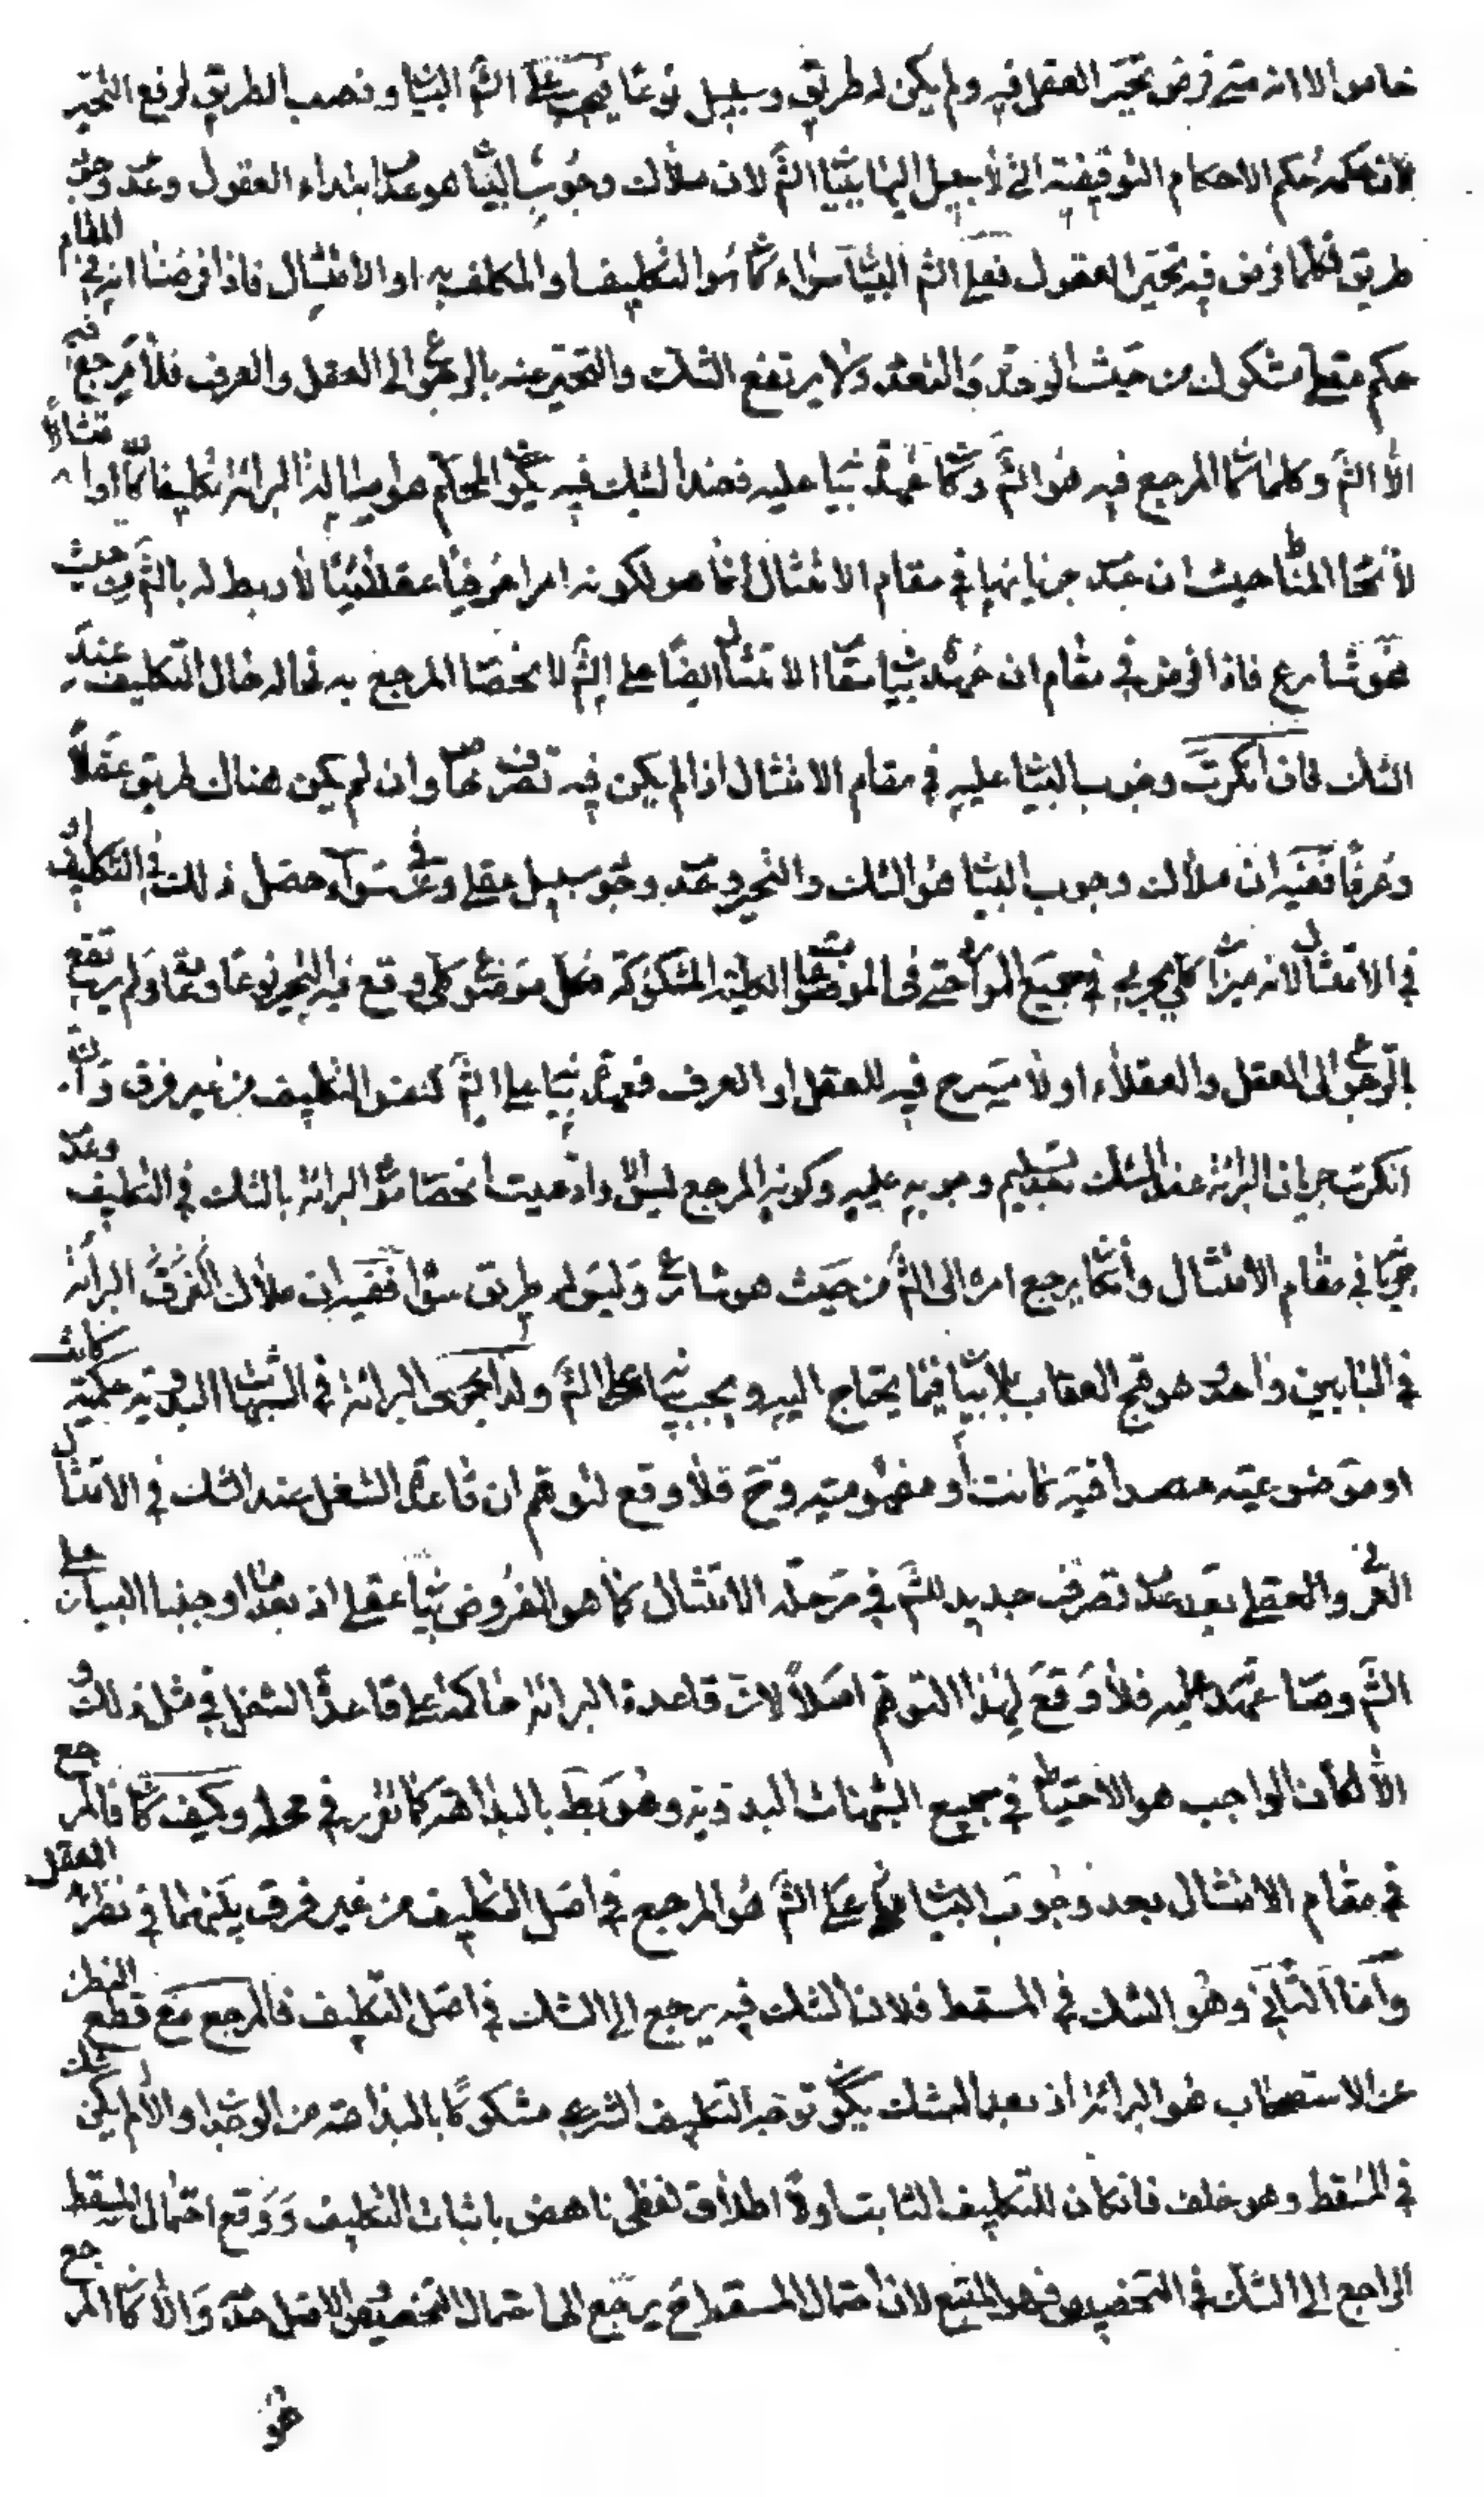 خاص الا انه متى فرض تحيّر العقل فيه ولم يكن له طريق وسبيل نوعا يجب على الشّ البيا ونصب الطريق لرفع التحيّر
لان حكمه حكم الاحكام التوقيفية التى لا سبيل اليها ببيا الشّ لان ملاك وجوب البيا هو عدا ابتداء العقول وعد وجو
طريق فكلما فرض فيه تحيّر العقول فعلى الشّ البيا سواء كا سوا التكليف او المكلف به او الامتثال فاذا فرضنا انه في المقام
حكم عقلى مشكوك من حيث الوحدة والتعدد ولا يرتفع الشك والتحير عنه بالرجو الى العقل والعرف فلا مرجع فيه
الا الشّ وكلما كا المرجع فيه هو الشّ وكا عهدة بيا عليه فعند الشك فيه يكو المحكم هو اصالة البرائة تكليفا كا او امتثالا
لاتحا المنا حيث ان عد جريانها في مقام الامتثال انما هو لكونه امرا عرفيا عقلائيا لا ربط له بالشّ من حيث
هو شارع فاذا فرض في مقام ان عهدة بيا مقا الامتثا ايضا على الشّ لانحصا المرجع به فحاله حال التكليف عند
الشك فان انكرت وجوب البيا عليه في مقام الامتثال اذا لم يكن فيه تصرف خا وان لم يكن هناك طريق عقلا
وعرفا ففيه ان ملاك وجوب البيا هو الشك والتحير وعد وجو سبيل عقلى وعرفى سواء حصل ذلك في التكليف او
في الامتثا لانه ميزا كلى يجرى في جميع الموا حتى في الموضوعا الكلية المشكوكة فكل موضو كلى وقع فيه التحير نوعا ولم يرتفع
بالرجو الى العقل والعقلاء او لا مسرح فيه للعقل او العرف فعهدة بيا على الشّ كنفس التكليف من غير فرق وان
انكرت جريان البرائة عند الشك بعد تسليم وجوبه عليه وكونه المرجع ليس الا وادعيت اختصا مو البرائة بالشك في التكليف وعد
جريا في مقام الامتثال وان كا يرجع امره الى الشّ من حيث هو شارع وليس له طريق سوا ففيه ان ملاك البرائة
في البابين واحد هو قبح العقاب بلا بيا فيما يحتاج اليه ويجب بيا على الشّ ولذا يجرى البرائة في الشبها البدوية حكمية كانت
او موضوعية مصداقية كانت او مفهومية وح فلا وقع لتوهم ان قاعدة الشغل عند الشك في الامتثال
العرفى والعقلى بعد عد تصرف جديد للشّ في مرحلة الامتثال كما هو المفروض بيا عقلى اذ بعد ما اوجبنا البيان على
الشّ وصا عهدته عليه فلا وقع لهذا التوهم اصلا لان قاعدة البرائة حاكمة على قاعدة الشغل في مثل ذلك و
الا لكان الواجب هو الاحتيا في جميع الشبهات البدوية وهو بط بالبداهة كما تقرر في محله وكيف كا فالمرجع
في مقام الامتثال بعد وجوب البيا على الشّ هو المرجع في اصل التكليف من غير فرق بينهما في نظر العقل
واما الثانى وهو الشك في المسقط فلان الشك فيه يرجع الى الشك في اصل التكليف فالمرجع مع قطع النظر
عن الاستصحاب هو البرائة اذ بعد الشك يكو توجه التكليف الشرعى مشكوكا بالبداهة من الوجدا والا لم يكن شك
في المسقط وهو خلف فان كان للتكليف الثابت اولا اطلاق لفظى ناهض باثبات التكليف ووقع احتمال المسقط
الراجع الى الشك في التخصيص فهو المتبع لان احتمال المسقط ح يرجع الى احتمال التخصيص والاصل عدمه والا كا المرجع
هو